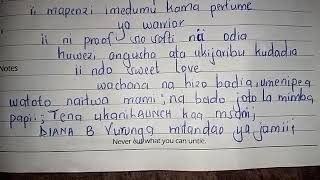 ii mapenzi imedumu kama perfume
ya warrior
ii ni proof ya softi nai odia
huwezi angusha ata ukijaribu kudadia
Notes
ii ndo sweet love
wachana na hizo badia, umenipea
watoto naitwa mami; na bado joto la mimba
papii; Tena ukaniLAUNCH kaa msanii,
DIANA B Vurunga mitandao ya jamii;
Never cut what you can untie.